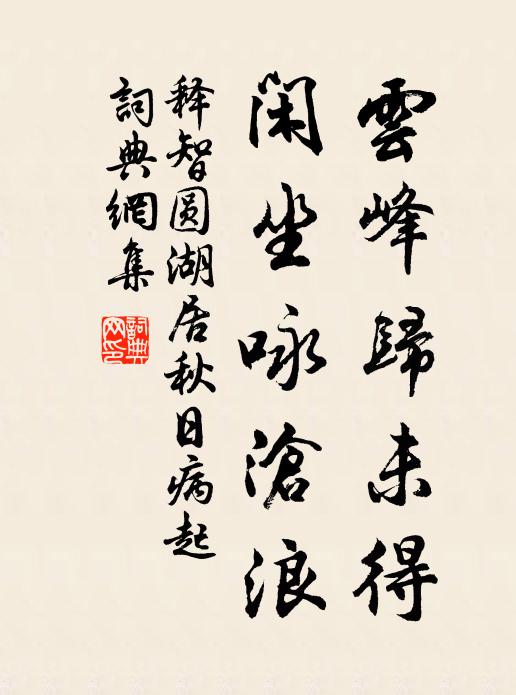 雲峰歸未得
閑坐咏滄浪
释智圆湖居秋日病起
詞典網集
詞典网印